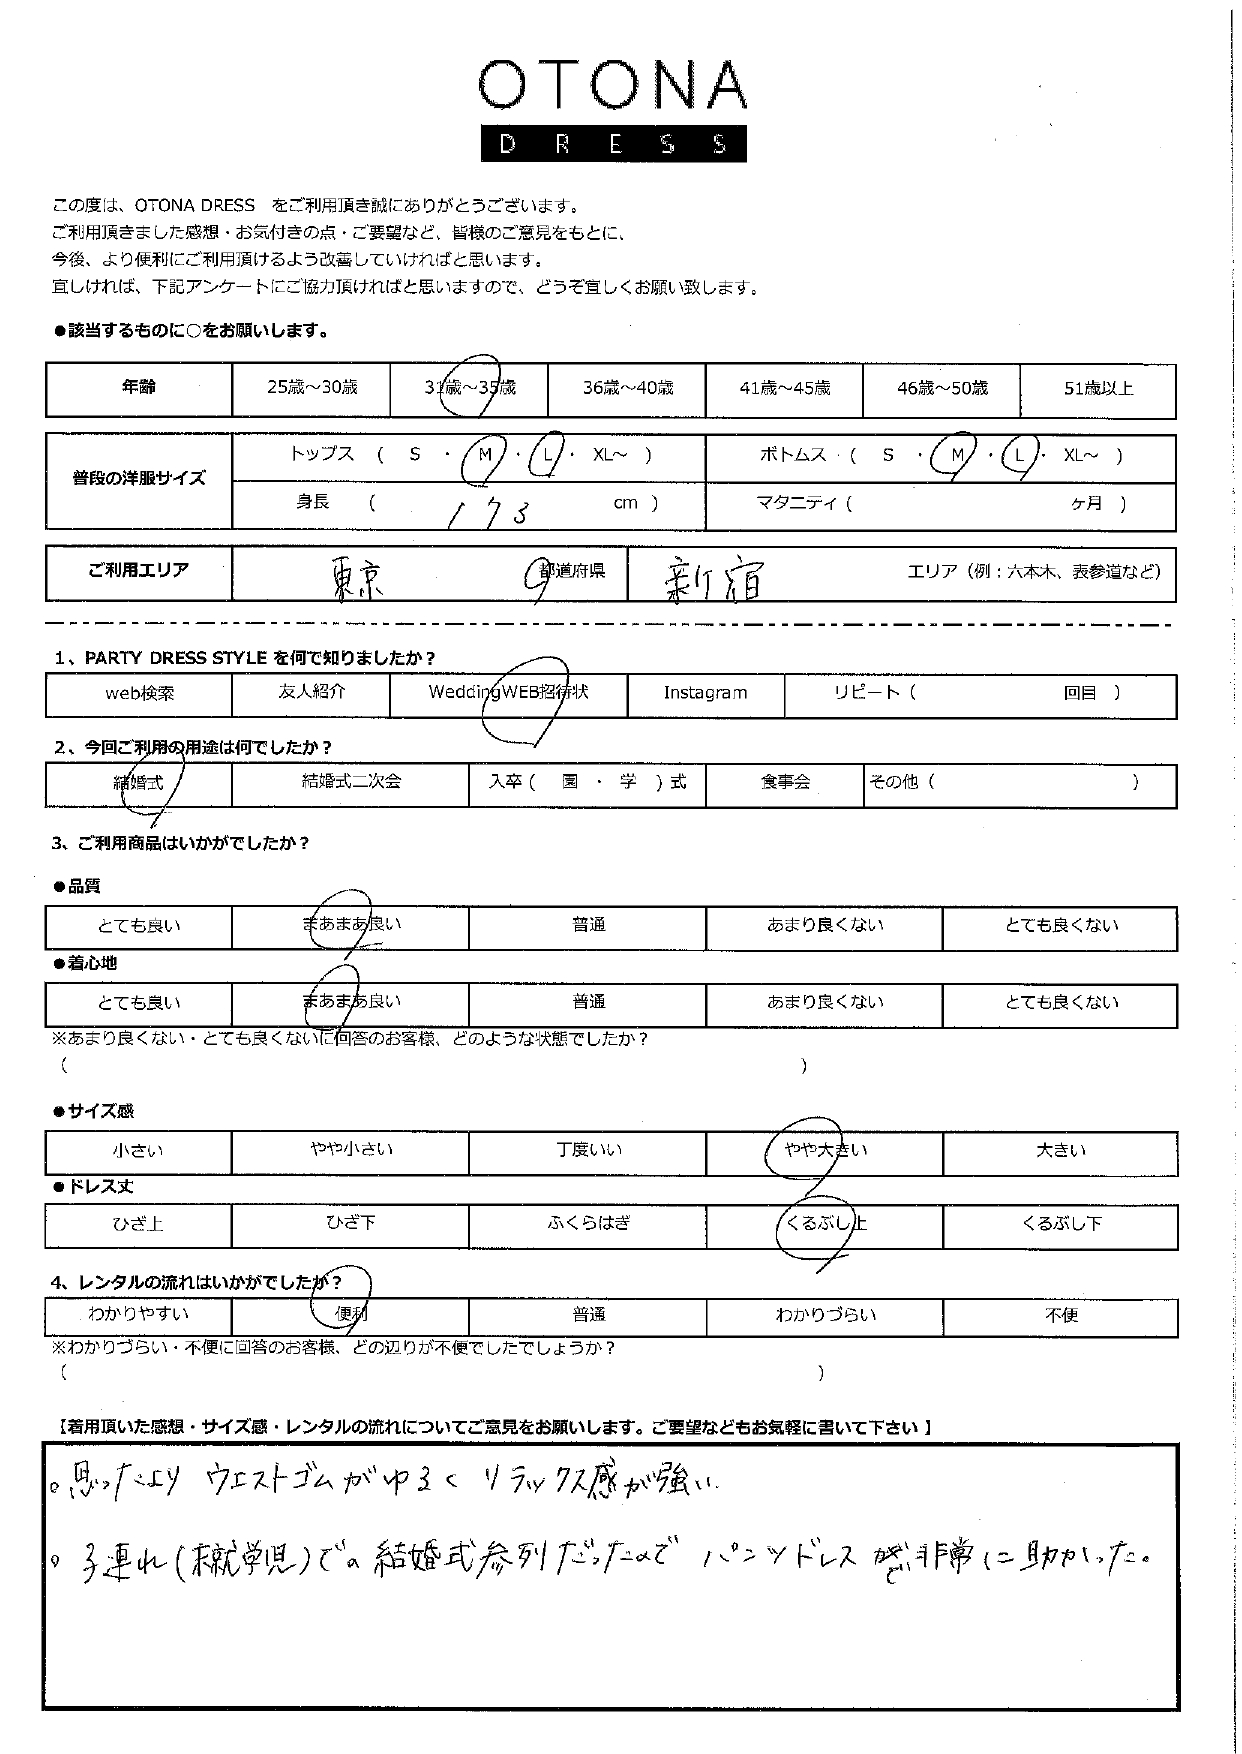 OTONA
DRESS
この度は、OTONA DRESS をご利用頂き誠にありがとうございます。
ご利用頂きました感想・お気付きの点・ご要望など、皆様のご意見をもとに、
今後、より便利にご利用頂けるよう改善していければと思います。
宜しければ、下記アンケートにご協力頂ければと思いますので、どうぞ宜しくお願い致します。
●該当するものに○をお願いします。
年齢 25歳～30歳 31歳～35歳 36歳～40歳 41歳～45歳 46歳～50歳 51歳以上
普段の洋服サイズ トップス ( S ・ M ・ L ・ XL～ ) ボトムス ・ ( S ・ M ・ L ・ XL～ )
身長 ( 173 cm ) マタニティ ( ヶ月 )
ご利用エリア 東京 都道府県 新宿 エリア（例：六本木、表参道など）
1、PARTY DRESS STYLE を何で知りましたか？
web検索 友人紹介 WeddingWEB招待状 Instagram リピート ( 回目 )
2、今回ご利用の用途は何でしたか？
結婚式 結婚式二次会 入卒 ( 園 ・ 学 ) 式 食事会 その他 ( )
3、ご利用商品はいかがでしたか？
●品質
とても良い まあまあ良い 普通 あまり良くない とても良くない
●着心地
とても良い まあまあ良い 普通 あまり良くない とても良くない
※あまり良くない・とても良くないに回答のお客様、どのような状態でしたか？
( )
●サイズ感
小さい やや小さい 丁度いい やや大きい 大きい
●ドレス丈
ひざ上 ひざ下 ふくらはぎ くるぶし上 くるぶし下
4、レンタルの流れはいかがでしたか？
わかりやすい 便利 普通 わかりづらい 不便
※わかりづらい・不便に回答のお客様、どの辺りが不便でしたでしょうか？
( )
【着用頂いた感想・サイズ感・レンタルの流れについてご意見をお願いします。ご要望などもお気軽に書いて下さい 】
。思ったより ウエストゴムがゆるく リラックス感が強い.
。子連れ(未就学児)での結婚式参列だったので パンツドレスで非常に助かった。